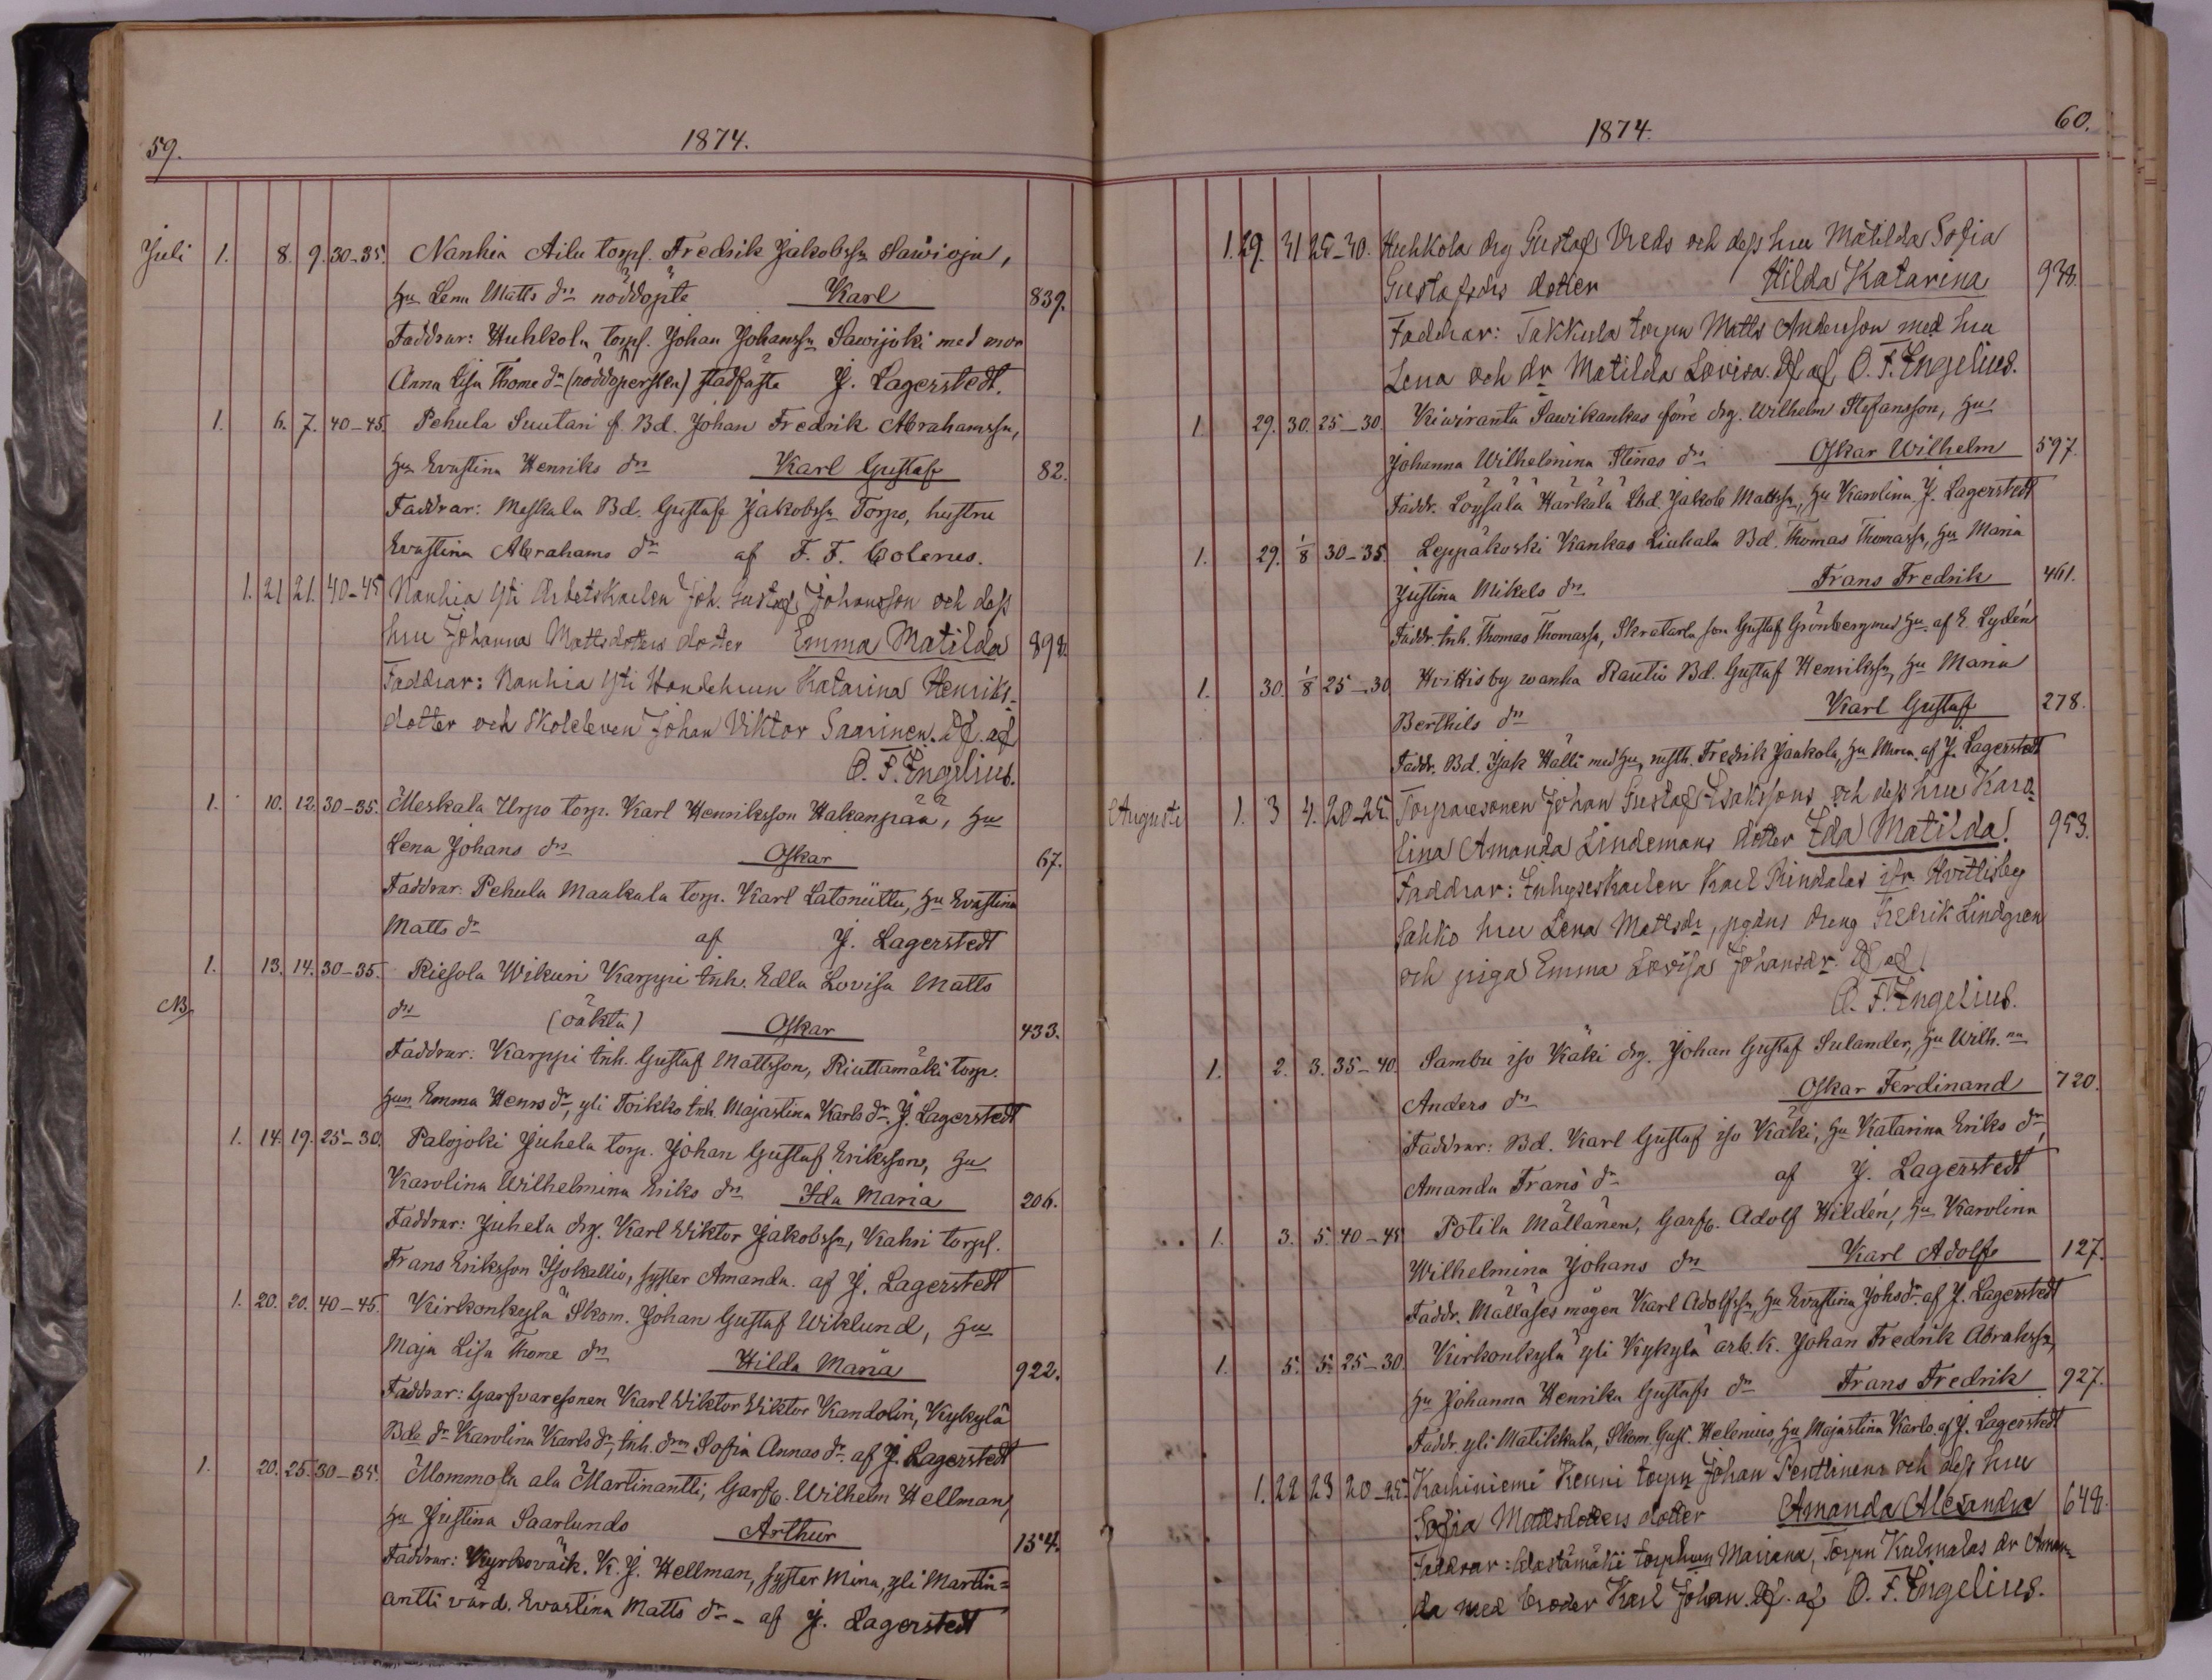 59.
1874.
Juli 1. 8. 9. 30-35. Nanhia Ailu torpf. Fredrik Jakobssn Sawioja,
hu Lena Matts dr nöddöpte Karl 839.
Faddrar: Huhkola torpf. Johan Johanssn Sawijoki med mor
Anna Lisa Thome dr (nöddöpersken) stadfäste J. Lagerstedt.
1. 6. 7. 40-45. Pehula Suutari f. Bd. Johan Fredrik Abrahamssn,
hu Evastina Henriks dr Karl Gustaf 82.
Faddrar: Meskala Bd. Gustaf Jakobssn Torpo, hustru
Evastina Abrahams dr af F. F. Colerus.
1. 21 21. 40-45 Nanhia Yti Arbetskarlen Joh. Gustaf Johansson och dess
hru Johanna Mattsdoters doter Emma Matilda 898.
Faddrar: Nanhia Yti Katarina Henriks-
dotter och Skoleleven Johan Viktor Saarinen. Df. af
O. F. Engelius.
1. 10. 12. 30-35. Meskala Urpo torp. Karl Henriksson Hakanpää, hu
Lena Johans dr Oskar 67.
Faddrar: Pehula Maakala torp. Karl Latoniittu, hu Evastina
Matts dr af J. Lagerstedt
1. 13. 14. 30-35. Riesola Wikuri Karppi inh. Edla Lovisa Matts
NB dr (oäkta) Oskar 433.
Faddrar: Karppi inh. Gustaf Mattsson, Riuttamäki torp.
hun Emma Henrs dr, yli Toikko inh. Majastina Karls dr. J. Lagerstedt
1. 14. 19. 25-30. Palojoki Juhela torp. Johan Gustaf Eriksson, hu
Karolina Wilhelmina Eriks dr Ida Maria 206.
Faddrar: Juhela drg. Karl Wiktor Jakobssn, Kahri torpf.
Frans Eriksson Isokallio, syster Amanda. af J. Lagerstedt
1. 20. 20. 40-45. Kirkonkylä Skom. Johan Gustaf Wiklund, hu
Maja Lisa Thome dr Hilda Maria 922.
Faddrar: Garfvaresonen Karl Wiktor Wiktor Kandolin, Kykylä
Bds dr Karolina Karls dr, inh. drn Sofia Annas dr. af J. Lagerstedt
1. 20. 25. 30-35. Mommola ala Martinantti, Garfv. Wilhelm Hellman,
hu Justina Saarlunds Arthur 154.
Faddrar: Kyrkoväk. K. J. Hellman, syster Mina, yli Martin-
antti värd. Evastina Matts dr - af J. Lagerstedt
1874.
60.
1. 29. 31 25-30. Huhkola drg Gustaf Vreds och dess hru Matilda Sofia
Gustafsdrs dotter Hilda Katarina 938.
Faddrar: Takkula torpn Matts Andersson med hru
Lena och dr Matilda Lovisa. Df af O. F. Engelius.
1. 29. 30. 25-30. Kiwiranta Sawikankas före drg. Wilhelm Stefansson, hu
Johanna Wilhelmina Stinas dr Oskar Wilhelm 597.
Faddr. Löysälä Härkälä Lbd. Jakob Mattssn, hu Karolina. J. Lagerstedt
1. 29. 1/8 30-35. Leppäkoski Kankas Liuhala Bd. Thomas Thomassn, hu Maria
Justina Mikels dr Frans Fredrik 461.
Faddr. inh. Thomas Thomassn, Skratarla son Gustaf Grönberg med hu. af E. Lydén
1. 30. 1/8 25-30 Hvittisby wanha Rautio Bd. Gustaf Henrikssn, hu Maria
Berthils dr Karl Gustaf 278.
Faddr. Bd. Isak Hälli med hu, rusth. Fredrik Jaakola, hu af J. Lagerstedt
Augusti 1. 3 4. 20-25. Torparesonen Johan Gustaf Isakssons och dess hru Karo-
lina Amanda Lindemans dotter Ida Matilda. 953.
Faddrar: Inhyseskarlen Karl Rindalas ifr Hvittisby
Sahko hru Lena Mattsdr, pgdns dreng Fredrik Lindgren
och piga Emma Lovisa Johansdr. Df af
O. F. Engelius.
1. 2. 3. 35-40. Sambu iso Käki drg. Johan Gustaf Sulander, hu Wilh.na
Anders dr Oskar Ferdinand 720.
Faddrar: Bd. Karl Gustaf iso Käki, hu Katarina Eriks dr,
Amanda Frans dr af J. Lagerstedt
1. 3. 5. 40-45 Potila Mällänen, Garfv. Adolf Hildén, hu Karolina
Wilhelmina Johans dr Karl Adolf 127.
Faddr. Mälläses mågen Karl Adolfssn, hu Evastina Johs dr. af J. Lagerstedt
1. 5. 5. 25-30. Kirkonkylä yli Kykylä arb. k. Johan Fredrik Abrahssn,
hu Johanna Henrika Gustafs dr Frans Fredrik 927.
Faddr. yli Matilikkala, Skom. Gust. Helenius, hu Majastina Karls. af J. Lagerstedt
1. 22 23 20-25. Karhiniemi Kenni torpn Johan Penttinens och dess hru
Sofia Mattsdoters dotter Amanda Alexandra 648.
Faddrar: torphun Mariana, Torpn Kulmalas dr Aman-
da med broder Karl Johan. Df. af O. F. Engelius.